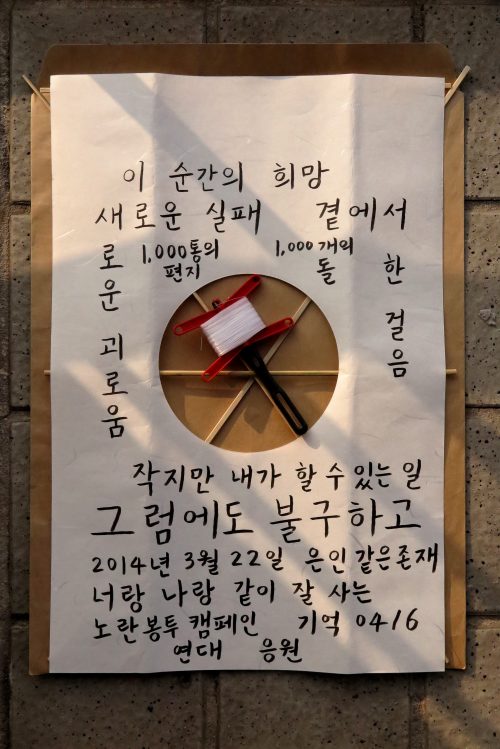 이 순간의 희망
새로운 실패 곁에서
1,000통의
편지
1,000개의
돌
로운 괴로움
한 걸음
작지만 내가 할 수 있는 일
그럼에도 불구하고
2014년 3월 22일 은인같은존재
너랑 나랑 같이 잘 사는
노란봉투 캠페인 기억 0416
연대 응원